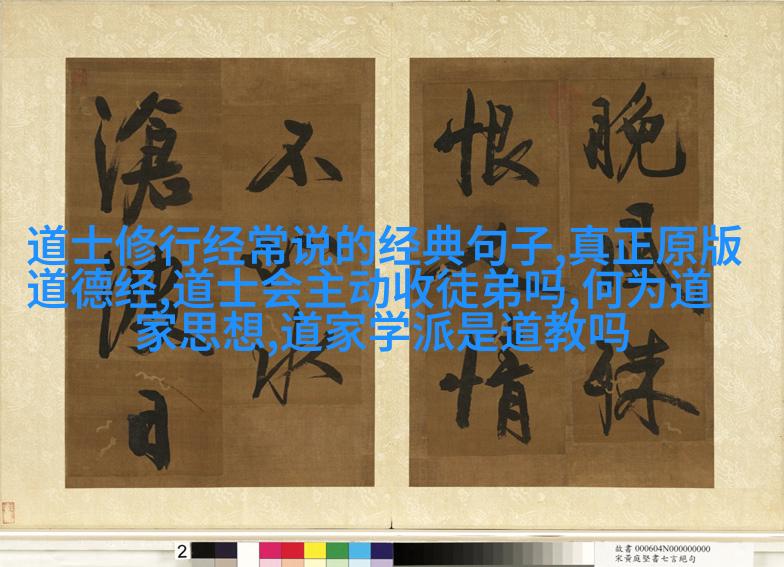 晚風殊
恨 情
不 水
滄浪日
道士修行经常说的经典句子,真正原版
道德经,道士会主动收徒弟吗,何为道
家思想,道家学派是道教吗
2
故書 000604N000000000
宋黃庭堅書七言絕句